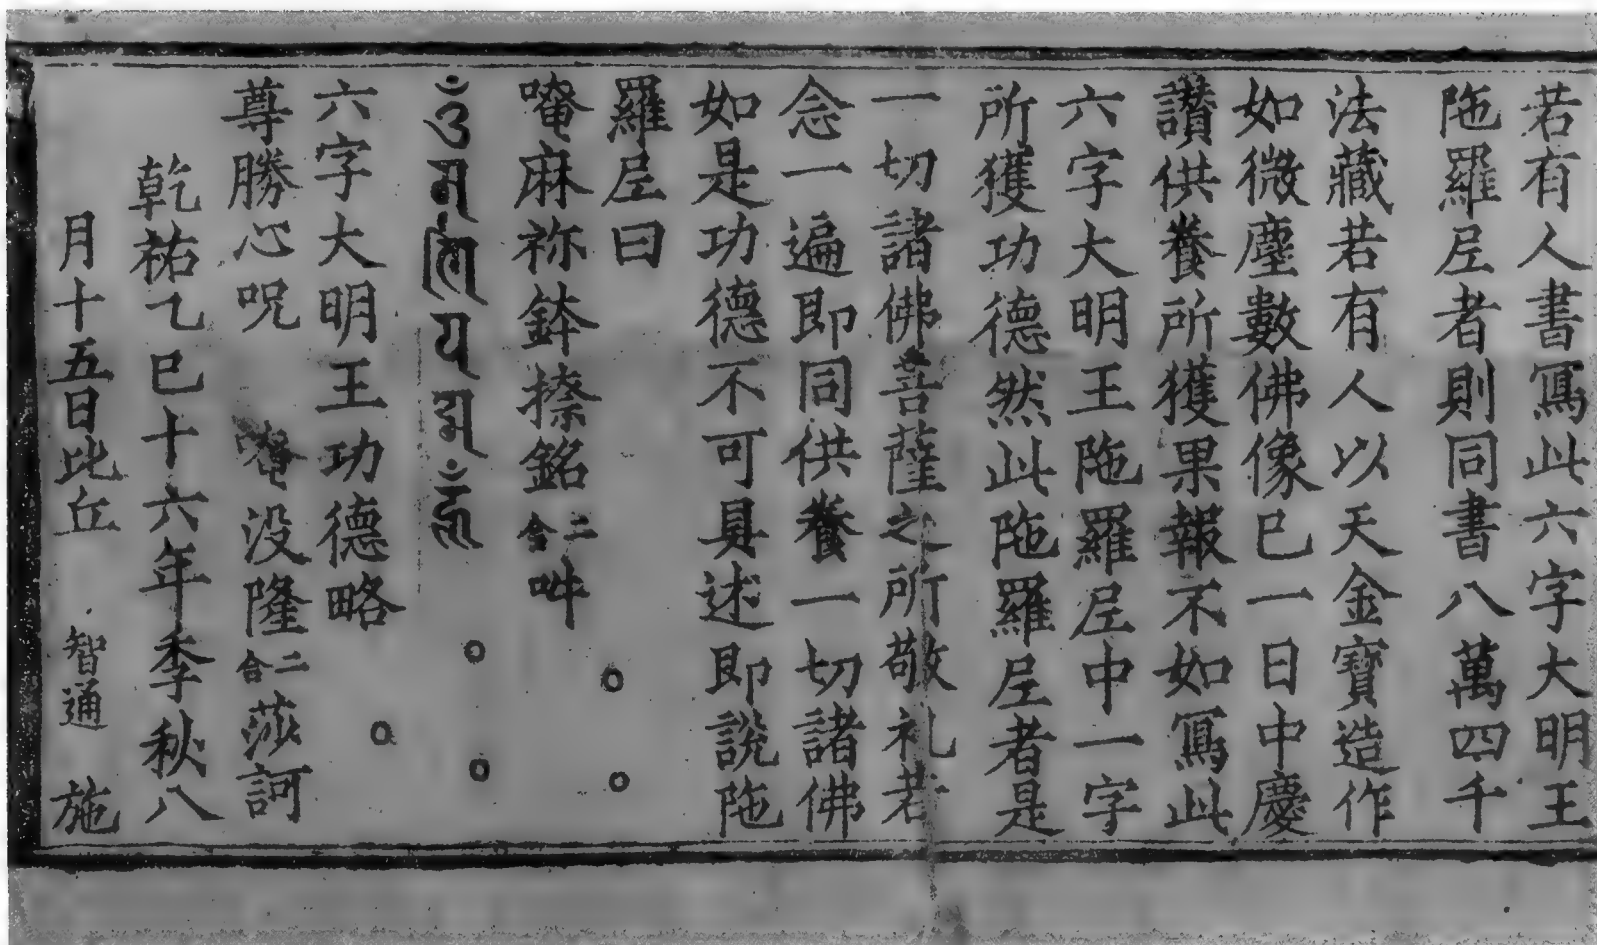 若有人書寫此六字大明王
陁羅𡰱者則同書八萬四千
法藏若有人以天金寶造作
如微塵數佛像已一日中慶
讚供養所獲果報不如寫此
六字大明王陁羅𡰱中一字
所獲功德然此陁羅𡰱者是
一切諸佛菩薩之所敬礼若
念一遍即同供養一切諸佛
如是功德不可具述即說陁
羅𡰱曰
唵麻祢鉢㨹銘二合吽
ॐ म णि प द्मे हूँ
六字大明王功德略
尊勝心呪　唵没隆二合莎訶
乾祐乙巳十六年季秋八
月十五日比丘　智通　施